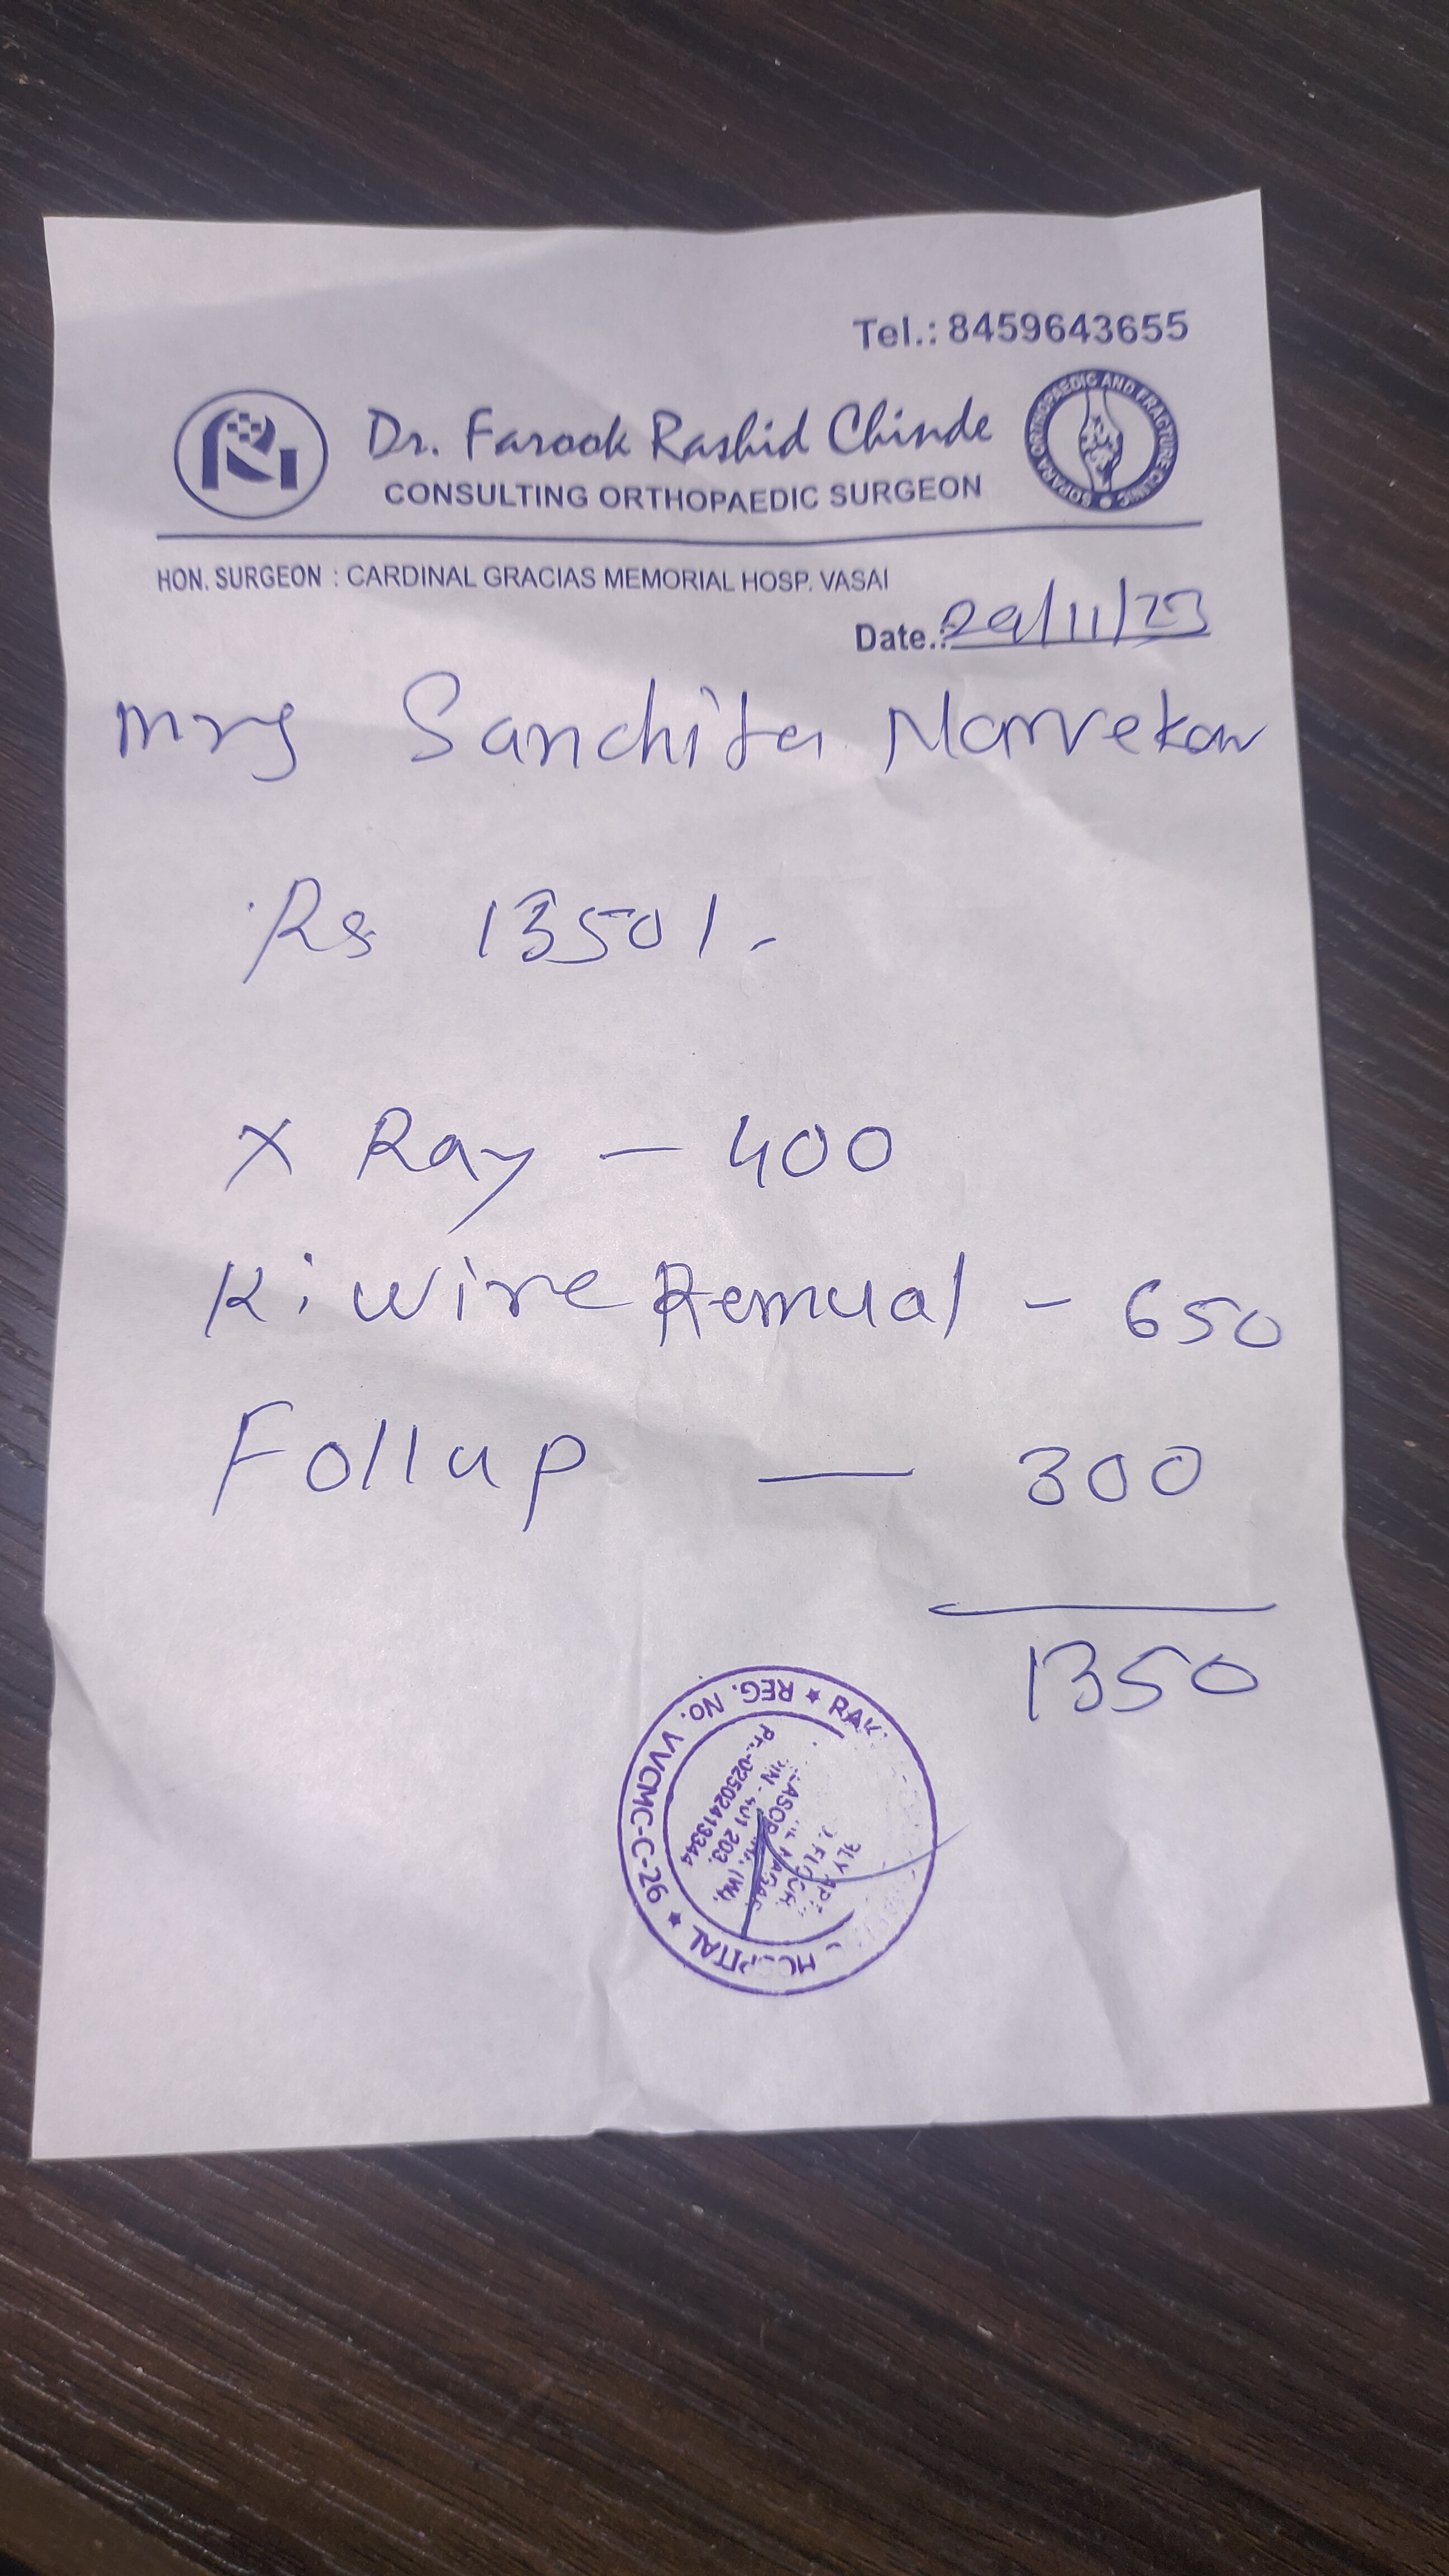 Tel.: 8459643655
RI
Dr. Farook Rashid Chinde
CONSULTING ORTHOPAEDIC SURGEON
SOPARA ORTHOPAEDIC AND FRACTURE CLINIC
HON. SURGEON : CARDINAL GRACIAS MEMORIAL HOSP. VASAI
Date.: 29/11/23
Mrs Sanchita Narvekar
Rs 1350/-
X Ray - 400
K. wire Remual - 650
Follup - 300
1350
REG. No. VVCMC-C-26
HOSPITAL
203.
02502413344